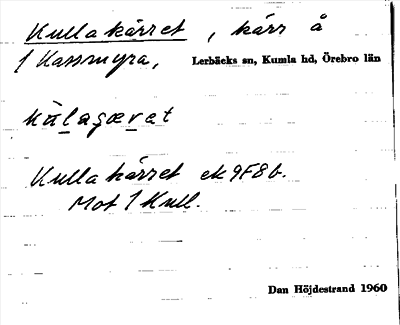 Kullakärret, kärr å
1 Kassmyra, Lerbäcks sn, Kumla hd, Örebro län
Kullakärret ek 9F8b.
Mot 1 Kull.
Dan Höjdestrand 1960